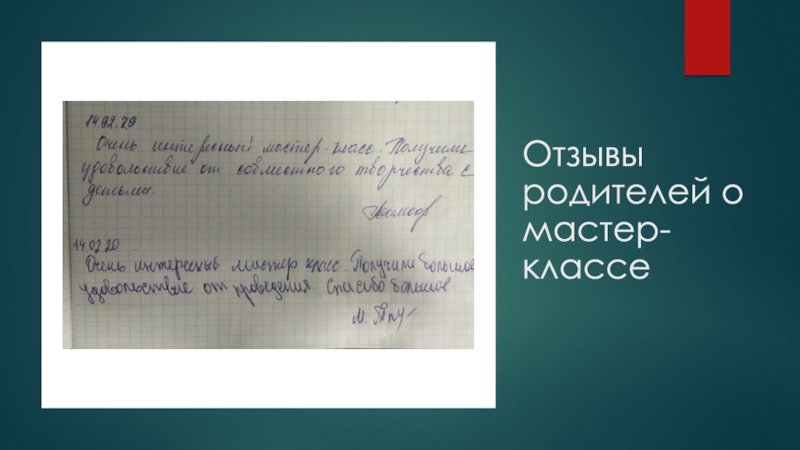 14.02.20
Очень интересный мастер-класс. Получили
удовольствие от совместного творчества с
детьми.
14.02.20
Очень интересный мастер класс. Получили большое
удовольствие от проведения. Спасибо большое.
М.
Отзывы
родителей о
мастер-
классе